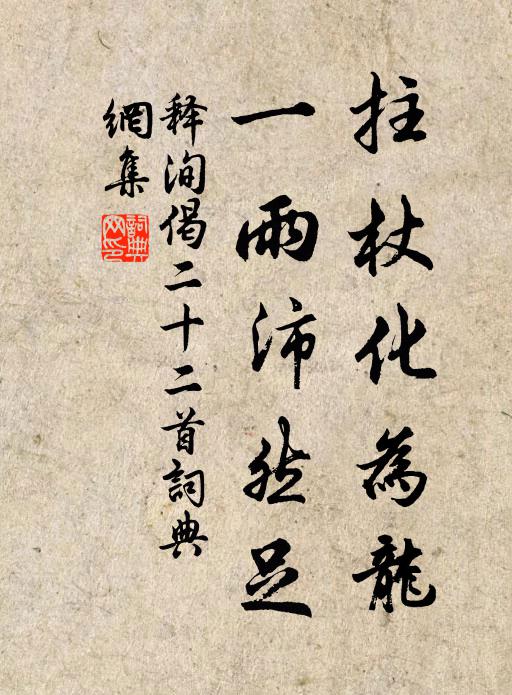 拄杖化為龍
一雨沛然足
释洵偈二十二首詞典
網集
詞典
网印